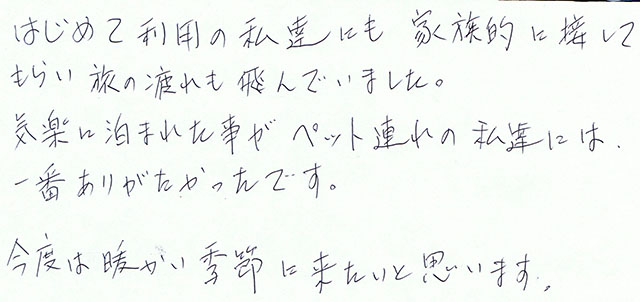 はじめて利用の私達にも家族的に接して
もらい旅の疲れも飛んでいました。
気楽に泊まれた事がペット連れの私達には、
一番ありがたかったです。
今度は暖かい季節に来たいと思います。